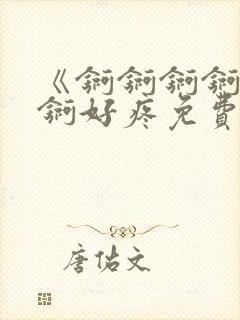 《锕锕锕锕
锕好疼免費
唐佑文